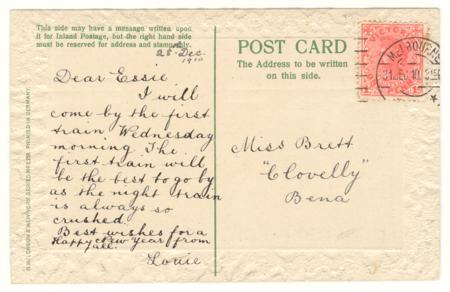 This side may have a message written upon
it for Inland Postage, but the right hand side
must be reserved for address and stamp only.
28th Dec.
1910
Dear Essie
I will
come by the first
train Wednesday
morning. The
first train will
be the best to go by
as the night train
is always so
crushed.
Best wishes for a
Happy New Year from
all.
Louie.
POST CARD
The Address to be written
on this side.
Miss Brett
"Clovelly"
Bena
VICTORIA
MELBOURNE
PRINTED IN GERMANY